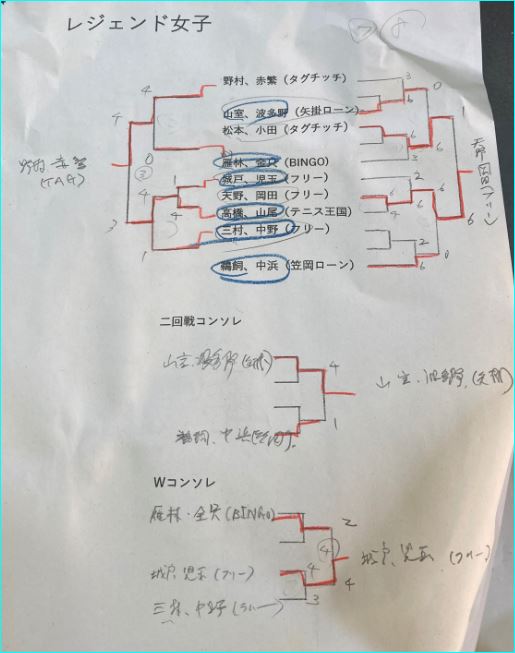 レジェンド女子
7 8
4
野村、赤繁（タグチッチ）
3
0
山室、波多野（矢掛ローン）
6
1
4
松本、小田（タグチッチ）
6
6
0
雁林、金只（BINGO）
3
野村 赤繁
(TAG)
②
4
1
城戸、児玉（フリー）
2
天野 岡田（フリー）
天野、岡田（フリー）
6
6
4
高橋、山尾（テニス王国）
4
6
3
三村、中野（フリー）
6
1
2
0
鵜飼、中浜（笠岡ローン）
6
二回戦コンソレ
山室、波多野（矢掛）
4
山室、波多野（矢掛）
1
鵜飼、中浜（笠岡）
Wコンソレ
雁林・金只（BINGO）
2
④
城戸、児玉（フリー）
4
城戸、児玉（フリー）
4
三村、中野（フリー）
3